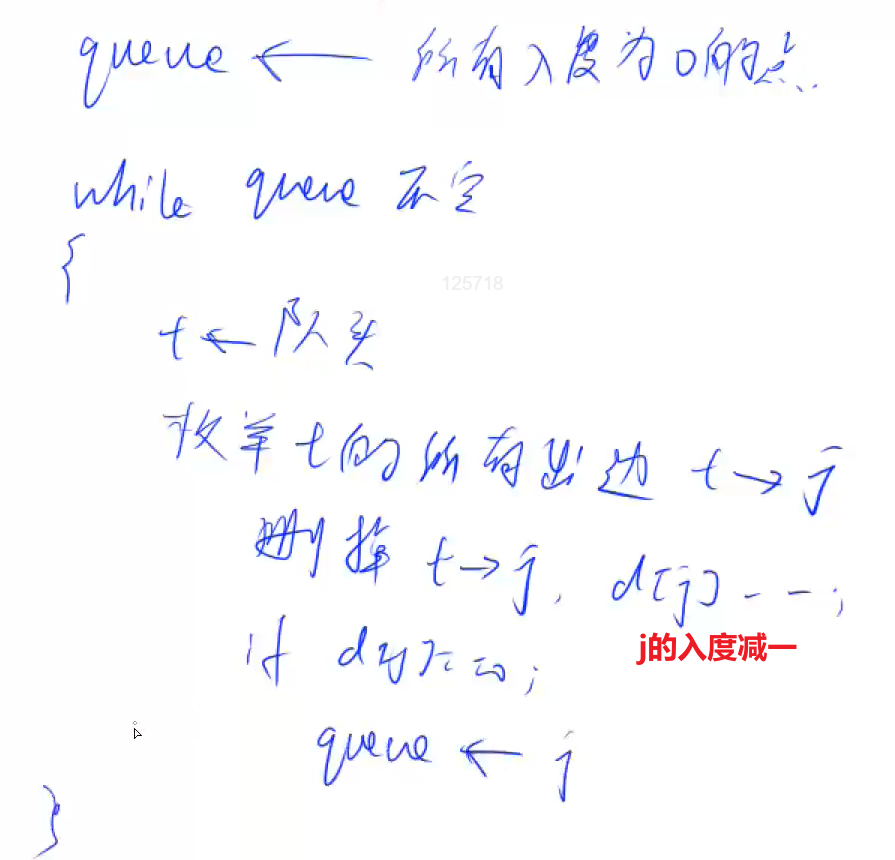 queue ← 所有入度为0的点
while queue 不空
{
125718
t ← 队头
枚举 t 的所有出边 t → j
删掉 t → j, d[j]--;
j的入度减一
if d[j] == 0;
queue ← j
}